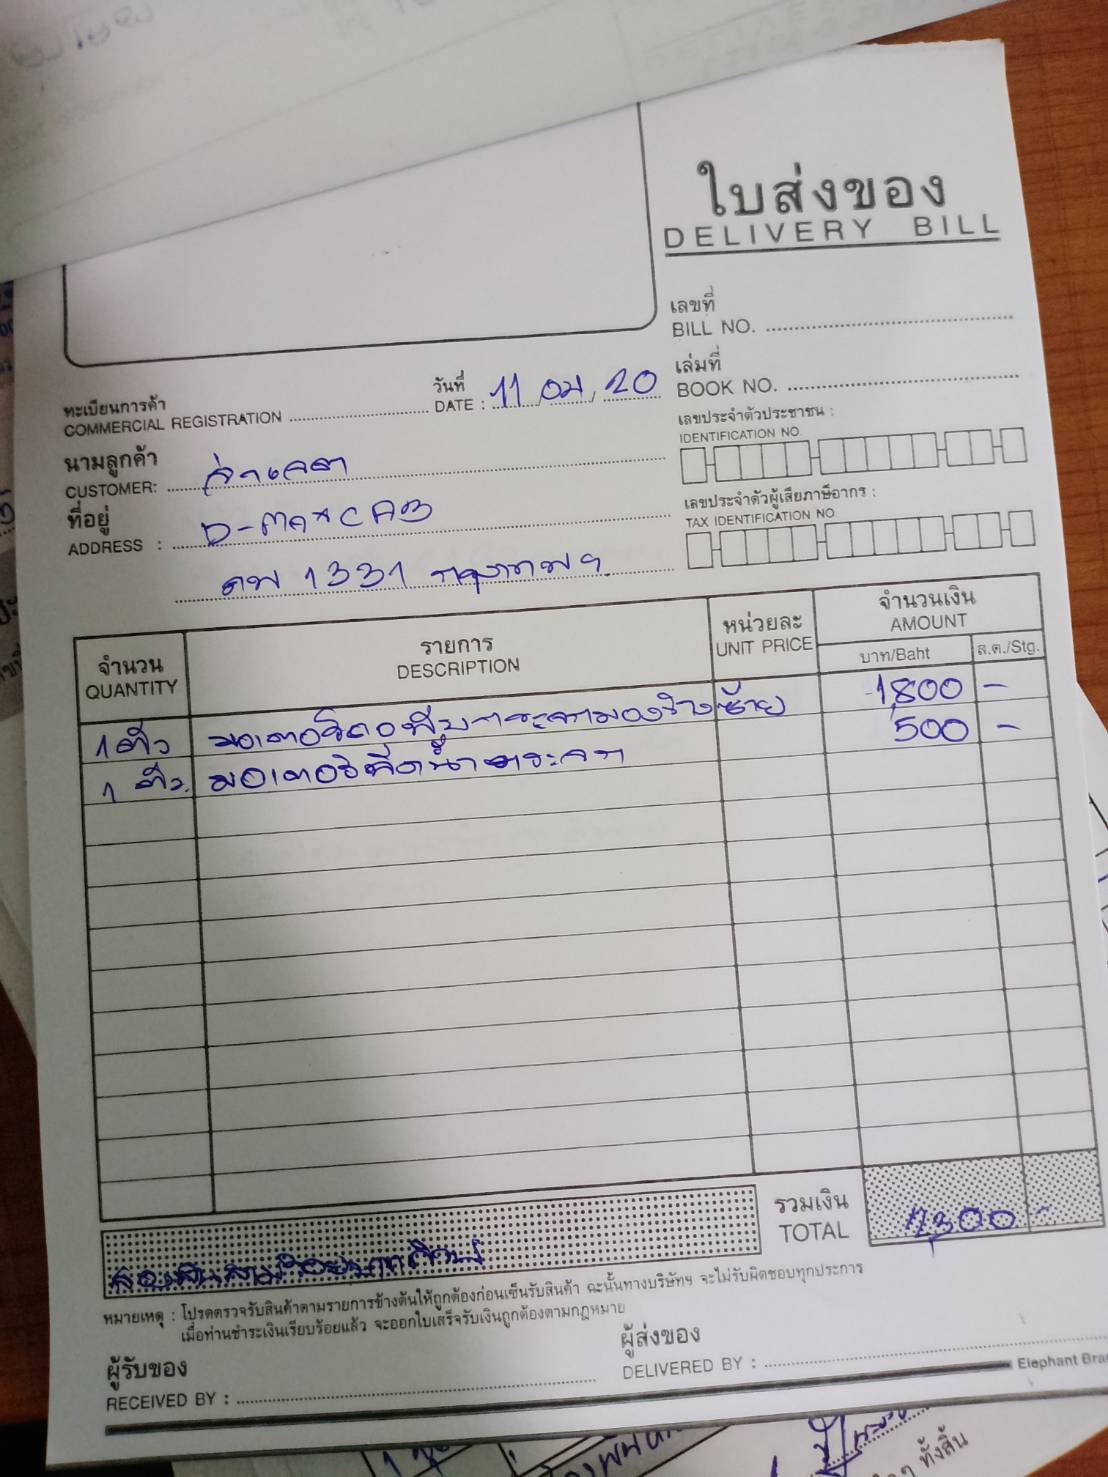 ใบส่งของ
DELIVERY BILL
เลขที่
BILL NO.
เล่มที่
BOOK NO.
ทะเบียนการค้า
COMMERCIAL REGISTRATION
วันที่
DATE : 11 20
เลขประจำตัวประชาชน :
IDENTIFICATION NO.
นามลูกค้า
CUSTOMER:
ที่อยู่
ADDRESS : D-MAX CAB
1331 กรุงเทพฯ
เลขประจำตัวผู้เสียภาษีอากร :
TAX IDENTIFICATION NO.
จำนวน
QUANTITY
รายการ
DESCRIPTION
หน่วยละ
UNIT PRICE
จำนวนเงิน
AMOUNT
บาท/Baht
ส.ต./Stg.
1 ตัว มอเตอร์ กระจกมองข้างซ้าย 1,800 -
1 ตัว. มอเตอร์ฉีดน้ำกระจก 500 -
รวมเงิน
TOTAL 2,300 -
สองพันสามร้อยบาทถ้วน
หมายเหตุ : โปรดตรวจรับสินค้าตามรายการข้างต้นให้ถูกต้องก่อนเซ็นรับสินค้า ฉะนั้นทางบริษัทฯ จะไม่รับผิดชอบทุกประการ
เมื่อท่านชำระเงินเรียบร้อยแล้ว จะออกใบเสร็จรับเงินถูกต้องตามกฎหมาย
ผู้รับของ
RECEIVED BY :
ผู้ส่งของ
DELIVERED BY :
Elephant Bra
ๆ ทั้งสิ้น